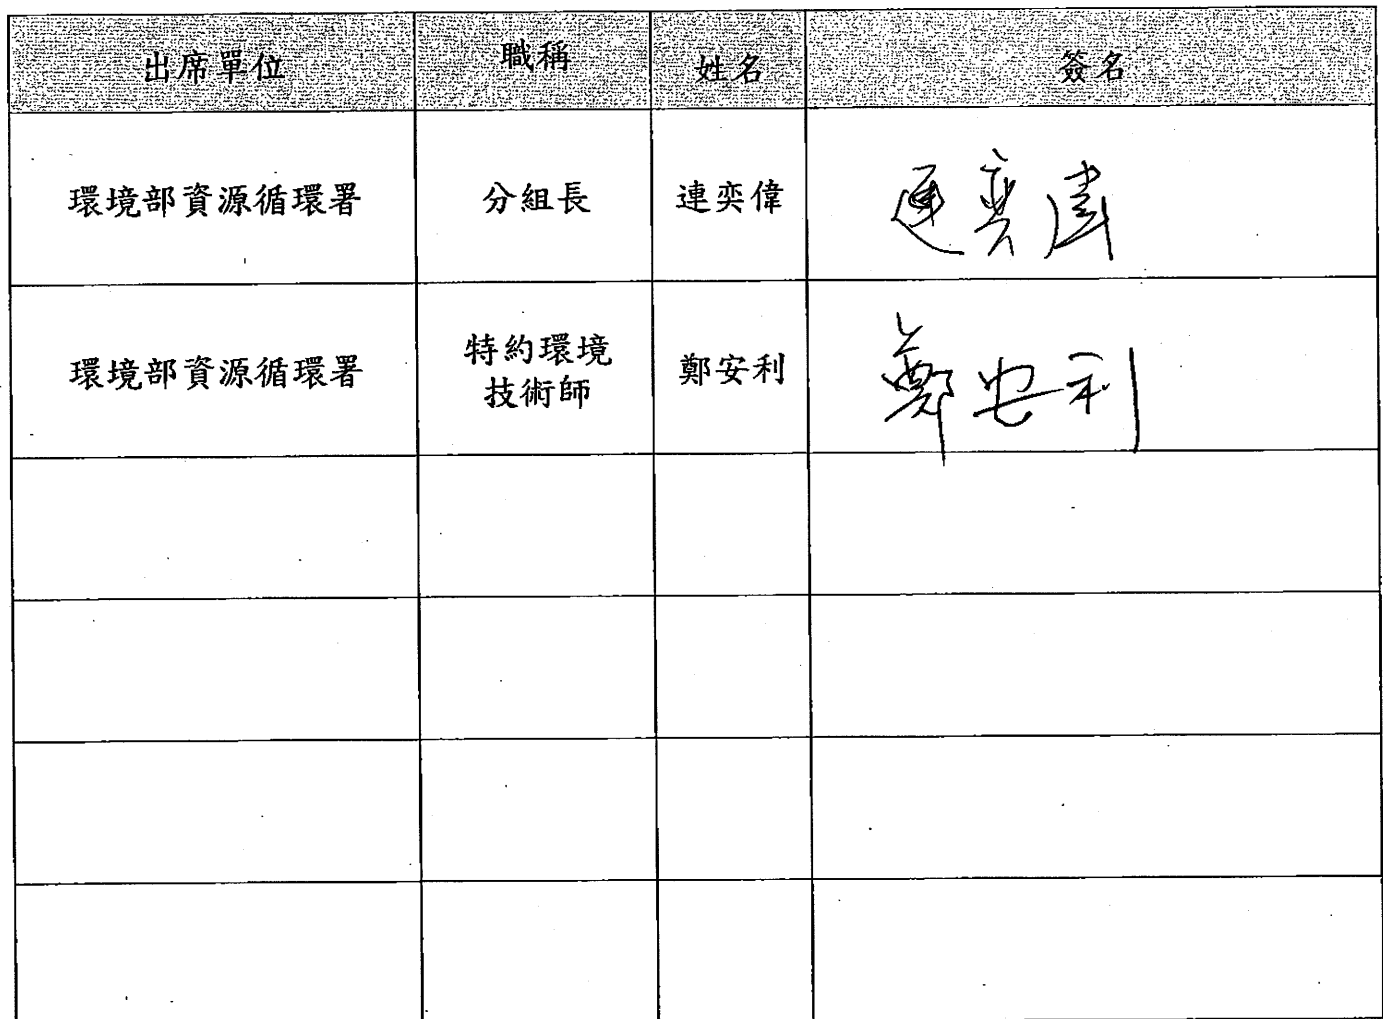 出席單位 職稱 姓名 簽名
環境部資源循環署 分組長 連奕偉 連奕偉
環境部資源循環署 特約環境技術師 鄭安利 鄭安利